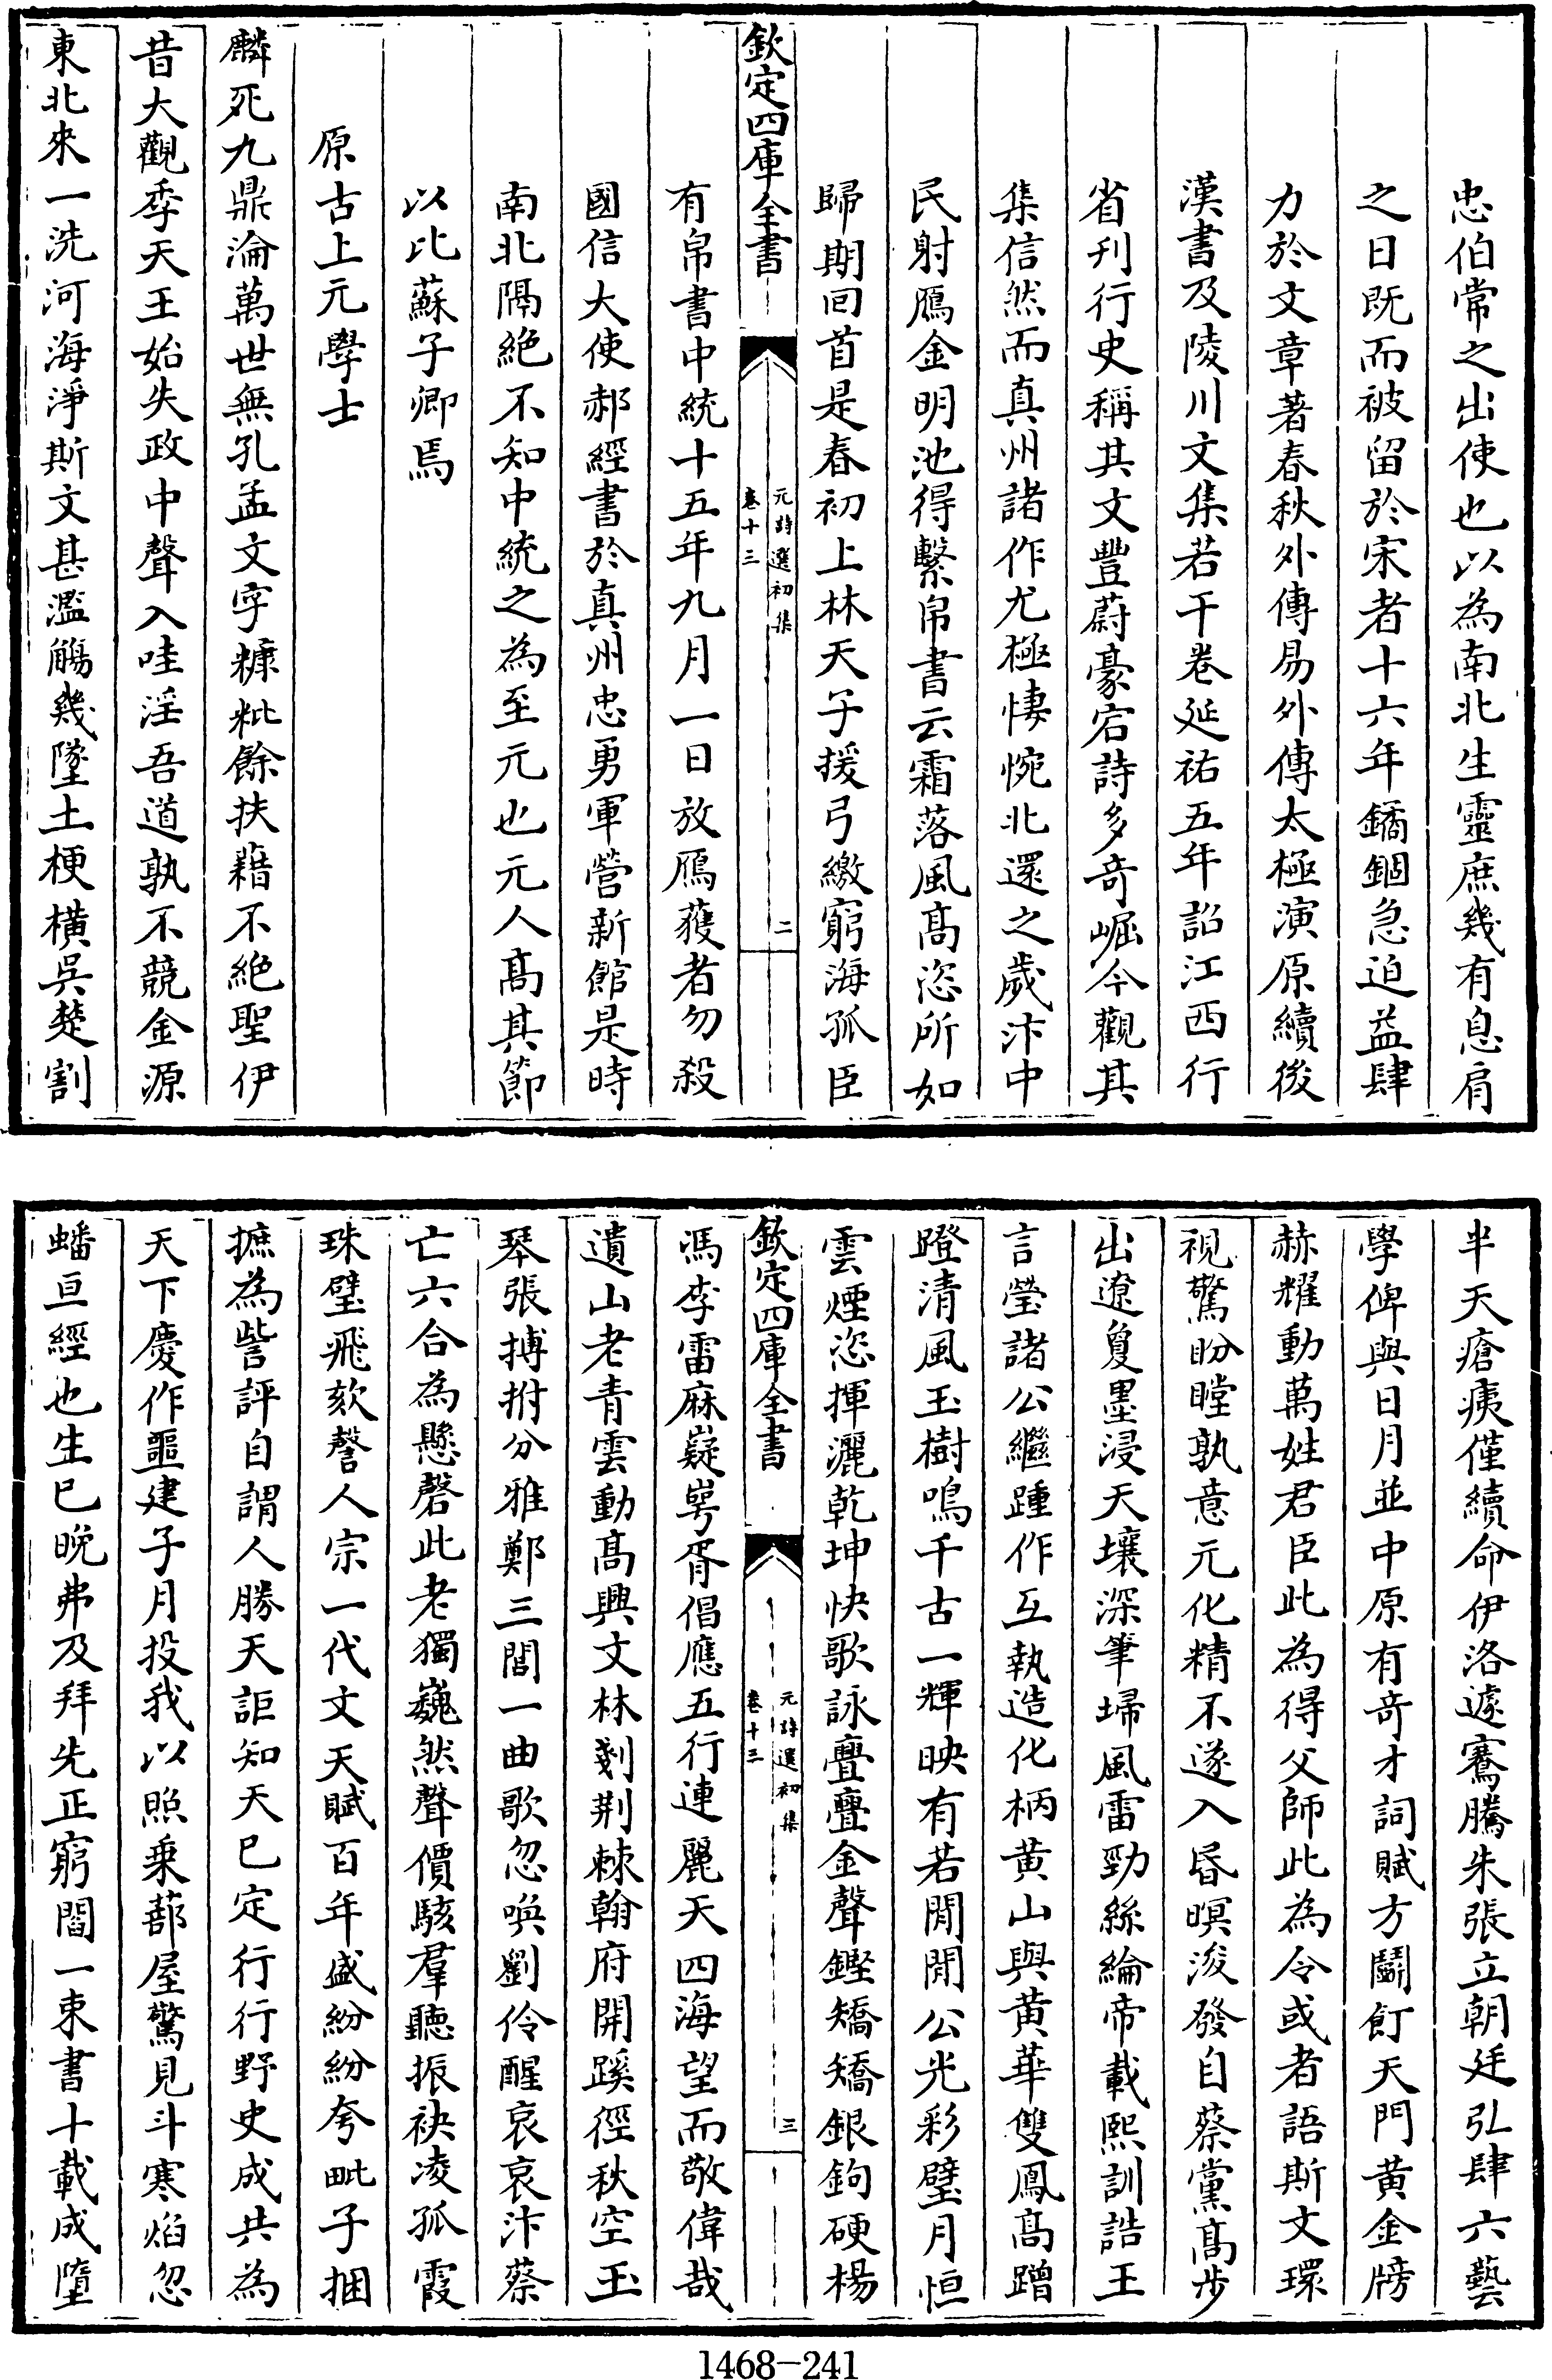 忠伯常之出使也以為南北生靈庶幾有息肩
之日既而被留於宋者十六年鐍錮急迫益肆
力於文章著春秋外傳易外傳太極演原續後
漢書及陵川文集若干卷延祐五年詔江西行
省刋行史稱其文豐蔚豪宕詩多奇崛今觀其
集信然而真州諸作尤極悽惋北還之歲汴中
民射鴈金明池得繫帛書云霜落風髙恣所如
歸期回首是春初上林天子援弓繳窮海孤臣
欽定四庫全書
元詩選初集
卷十三
二
有帛書中統十五年九月一日放鴈蒦者勿殺
國信大使郝經書於真州忠勇軍營新館是時
南北隔絶不知中統之為至元也元人髙其節
以比蘇子卿焉
原古上元學士
麟死九鼎淪萬世無孔孟文字糠粃餘扶藉不絶聖伊
昔大觀季天王始失政中聲入哇淫吾道孰不競金源
東北來一洗河海淨斯文甚濫觴幾墜土梗橫吳楚割
半天瘡痍僅續命伊洛遽騫騰朱張立朝廷弘肆六藝
學俾與日月並中原有奇才詞賦方鬭飣天門黄金牓
赫耀動萬姓君臣此為得父師此為令或者語斯文環
視驚盼瞠孰意元化精不遂入昏暝浚發自蔡黨髙步
出遼夐墨浸天壤深筆埽風雷勁絲綸帝載熙訓誥王
言瑩諸公繼踵作互執造化柄黄山與黄華雙鳳髙蹭
蹬清風玉樹鳴千古一輝映有若閒閒公光彩璧月恒
雲煙恣揮灑乾坤快歌詠亹亹金聲鏗矯矯銀鉤硬楊
欽定四庫全書
元詩選初集
卷十三
三
馮李雷麻嶷崿胥倡應五行連麗天四海望而敬偉哉
遺山老青雲動髙興文林剗荆棘翰府開蹊徑秋空玉
琴張搏拊分雅鄭三閭一曲歌忽喚劉伶醒哀哀汴蔡
亡六合為懸磬此老獨巍然聲價駭羣聽振袂凌孤霞
珠璧飛欬謦人宗一代文天賦百年盛紛紛夸毗子捆
摭為訾評自謂人勝天詎知天已定行行野史成共為
天下慶作噩建子月投我以照乗蔀屋驚見斗寒焰忽
蟠亘經也生已晚弗及拜先正窮閻一束書十載成墮
1468-241